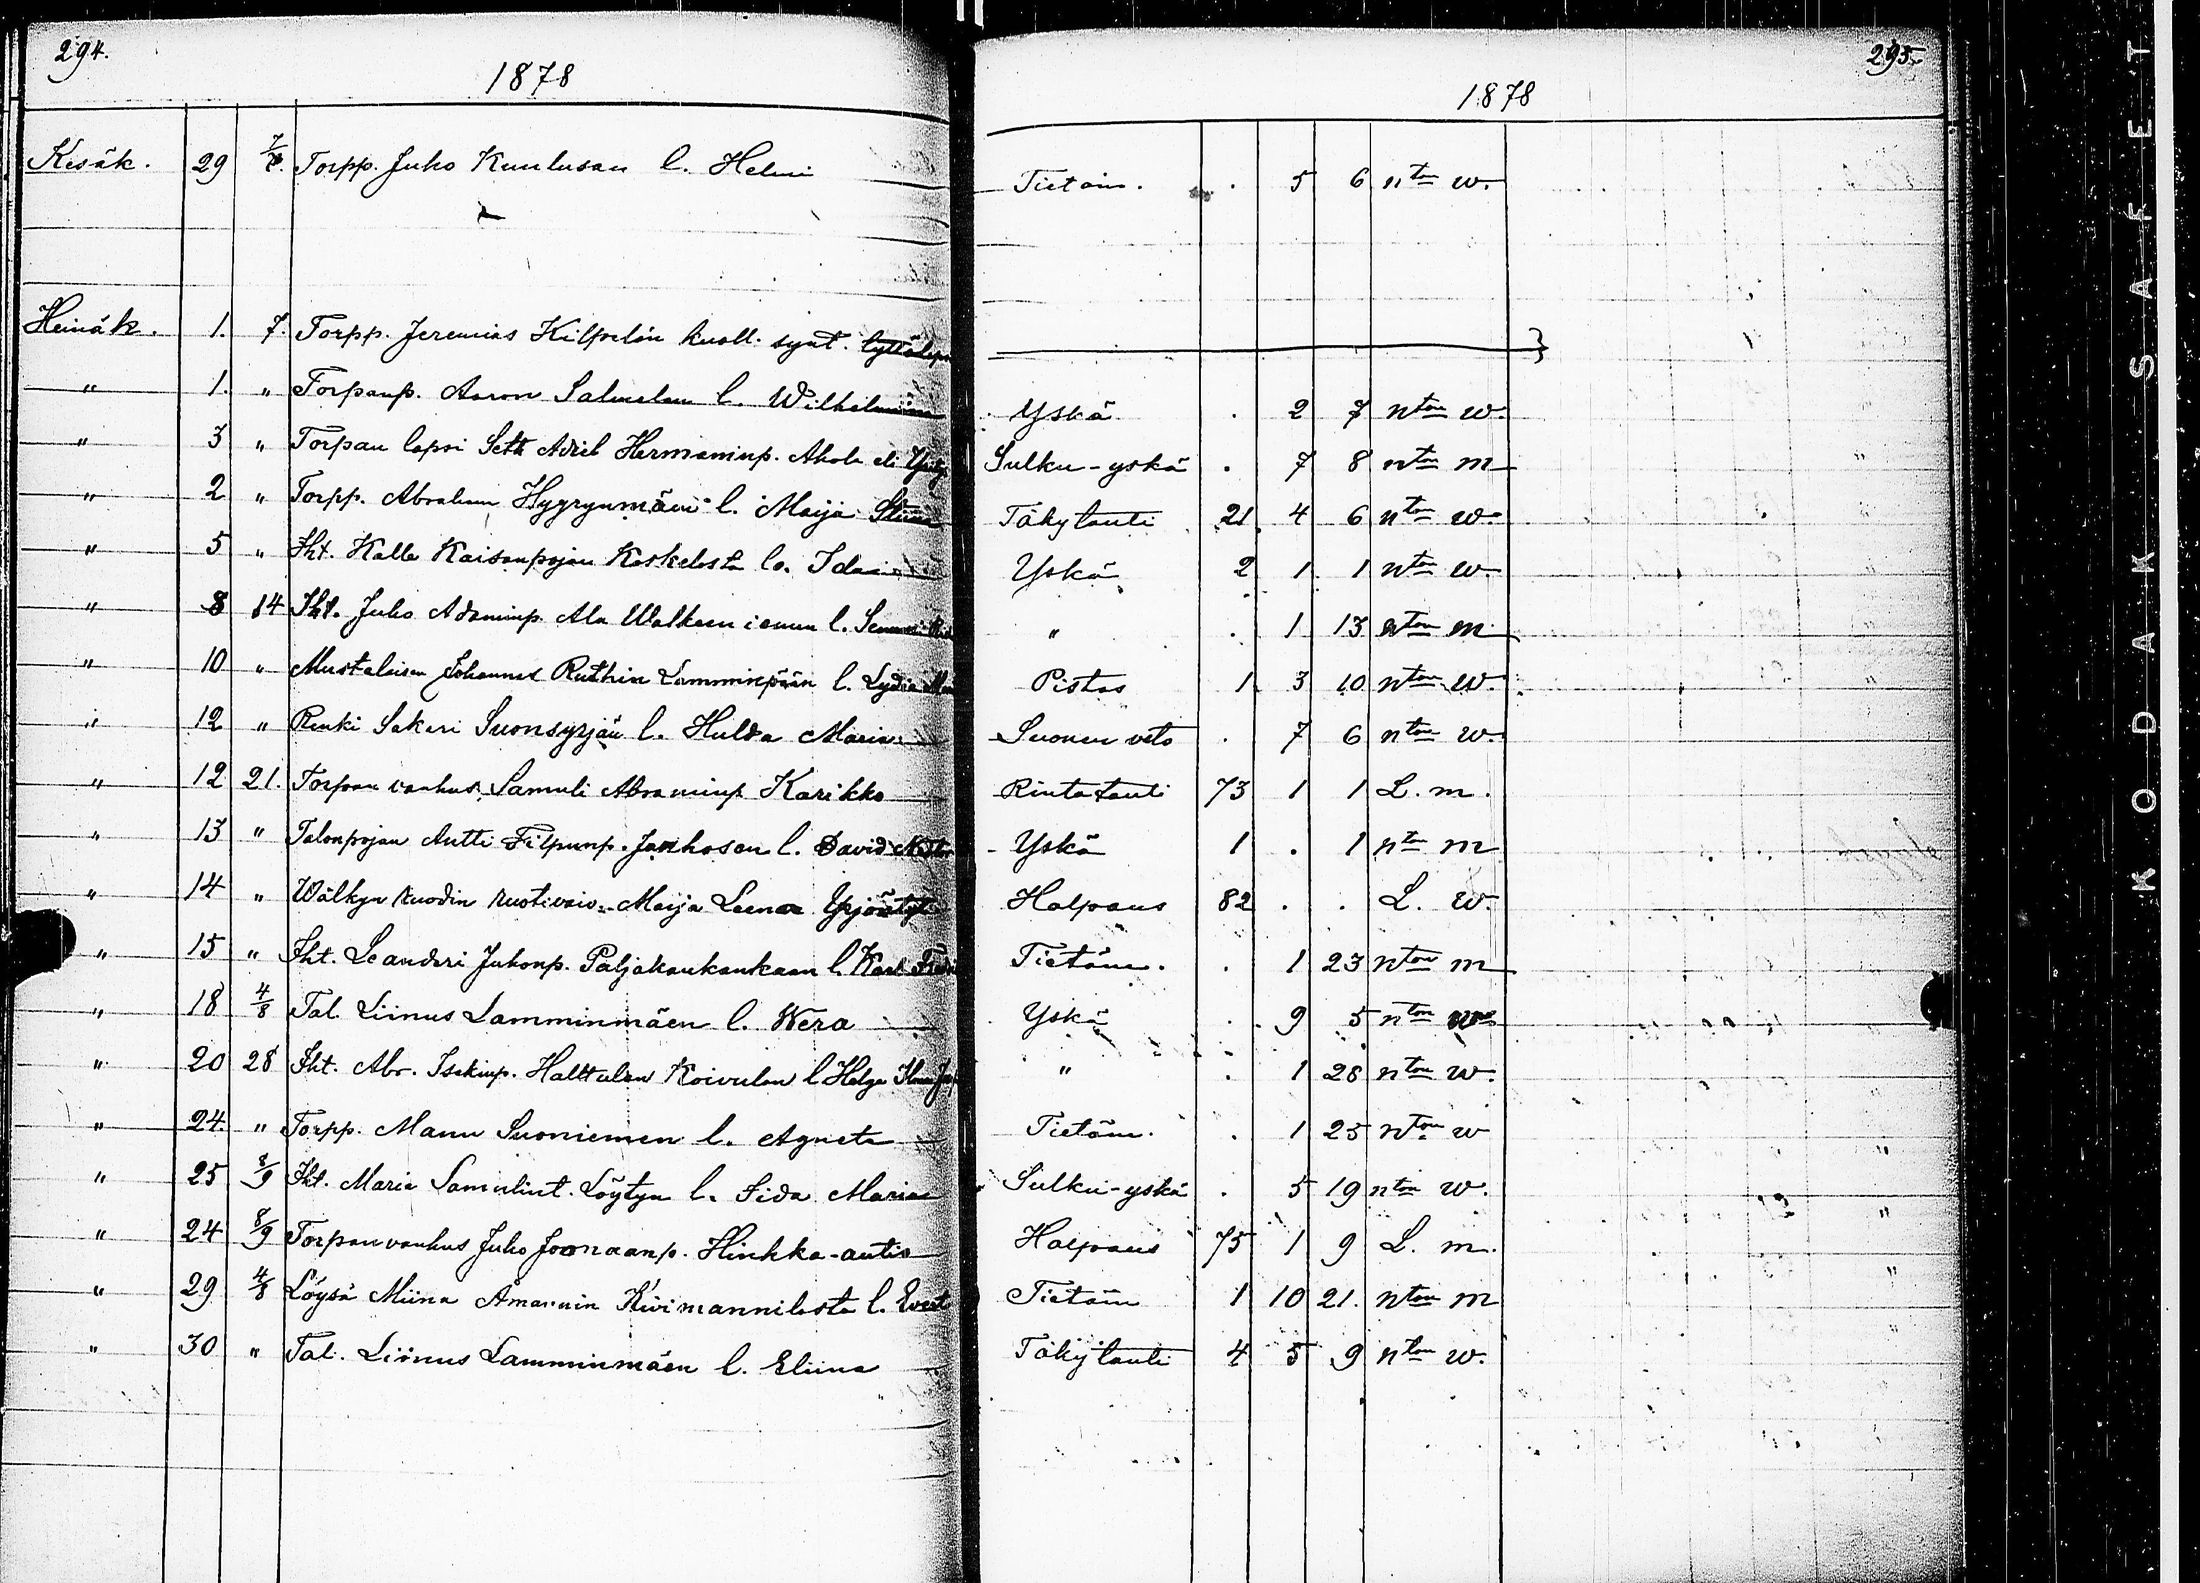 294.
1878
Kesäk. 29 7/7. Torpp. Juho Kuulusan l. Helmi
Heinäk. 1. 7. Torpp. Jeremias Kilpelän kuoll. synt. tyttölaps
" 1. " Torpanp. Aaron Salmelan l. Wilhelmiina
" 3 " Torpan lapsi Seth Adiel Hermaninp. Ahola eli
" 2 " Torpp. Abraham Hyyrynmäen l. Maija Stiina
" 5 " Iht. Kalle Kaisanpojan Koskelosta l. Ida
" 8 14 Iht. Juho Adaminp. Ala Walkeeniemen l.
" 10 " Mustalaisen Johannes Ruthin Lamminpään l. Lydia
" 12 " Renki Sakari Suonsyrjän l. Hulda Maria
" 12 21. Torpan vanhus Samuli Abraminp. Karikko
" 13 " Talonpojan Antti Filpunp. Janhosen l. David
" 14 " Wälkyn ruodin ruotivaiv. Maija Leena
" 15 " Iht. Leanderi Juhonp. Paljakankankaan l. Karl
" 18 4/8 Tal. Liinus Lamminmäen l. Wera
" 20 28 Iht. Abr. Isakinp. Halttulan Koivulan l. Helga
" 24. " Torpp. Manu Suoniemen l. Agneta
" 25 8/9 Iht. Maria Samulint. Löytyn l. Fida Maria
" 24 8/9 Torpan vanhus Juho Joonaanp. Hinkka-autio
" 29 4/8 Löysä Miina Amannin Kivimannilasta l. Evert
" 30 " Tal. Liinus Lamminmäen l. Eliina
295.
1878
Tietäm. . 5 6 nton w.
Yskä . 2 7 nton w.
Sulku-yskä . 7 8 nton m
Täkytauti 21 4 6 nton w.
Yskä 2 1 1 nton w.
" . 1 13 nton m
Pistos 1 3 10 nton w.
Suonen veto . 7 6 nton w.
Rintatauti 73 1 1 L. m.
Yskä 1 . 1 nton m
Halpaus 82 . . L. w.
Tietäm. . 1 23 nton m
Yskä . 9 5 nton w
" . 1 28 nton w.
Tietäm. . 1 25 nton w
Sulku-yskä . 5 19 nton w.
Halpaus 75 1 9 L. m.
Tietäm 1 10 21. nton m
Täkytauti 4 5 9 nton w.
KODAK SAFET